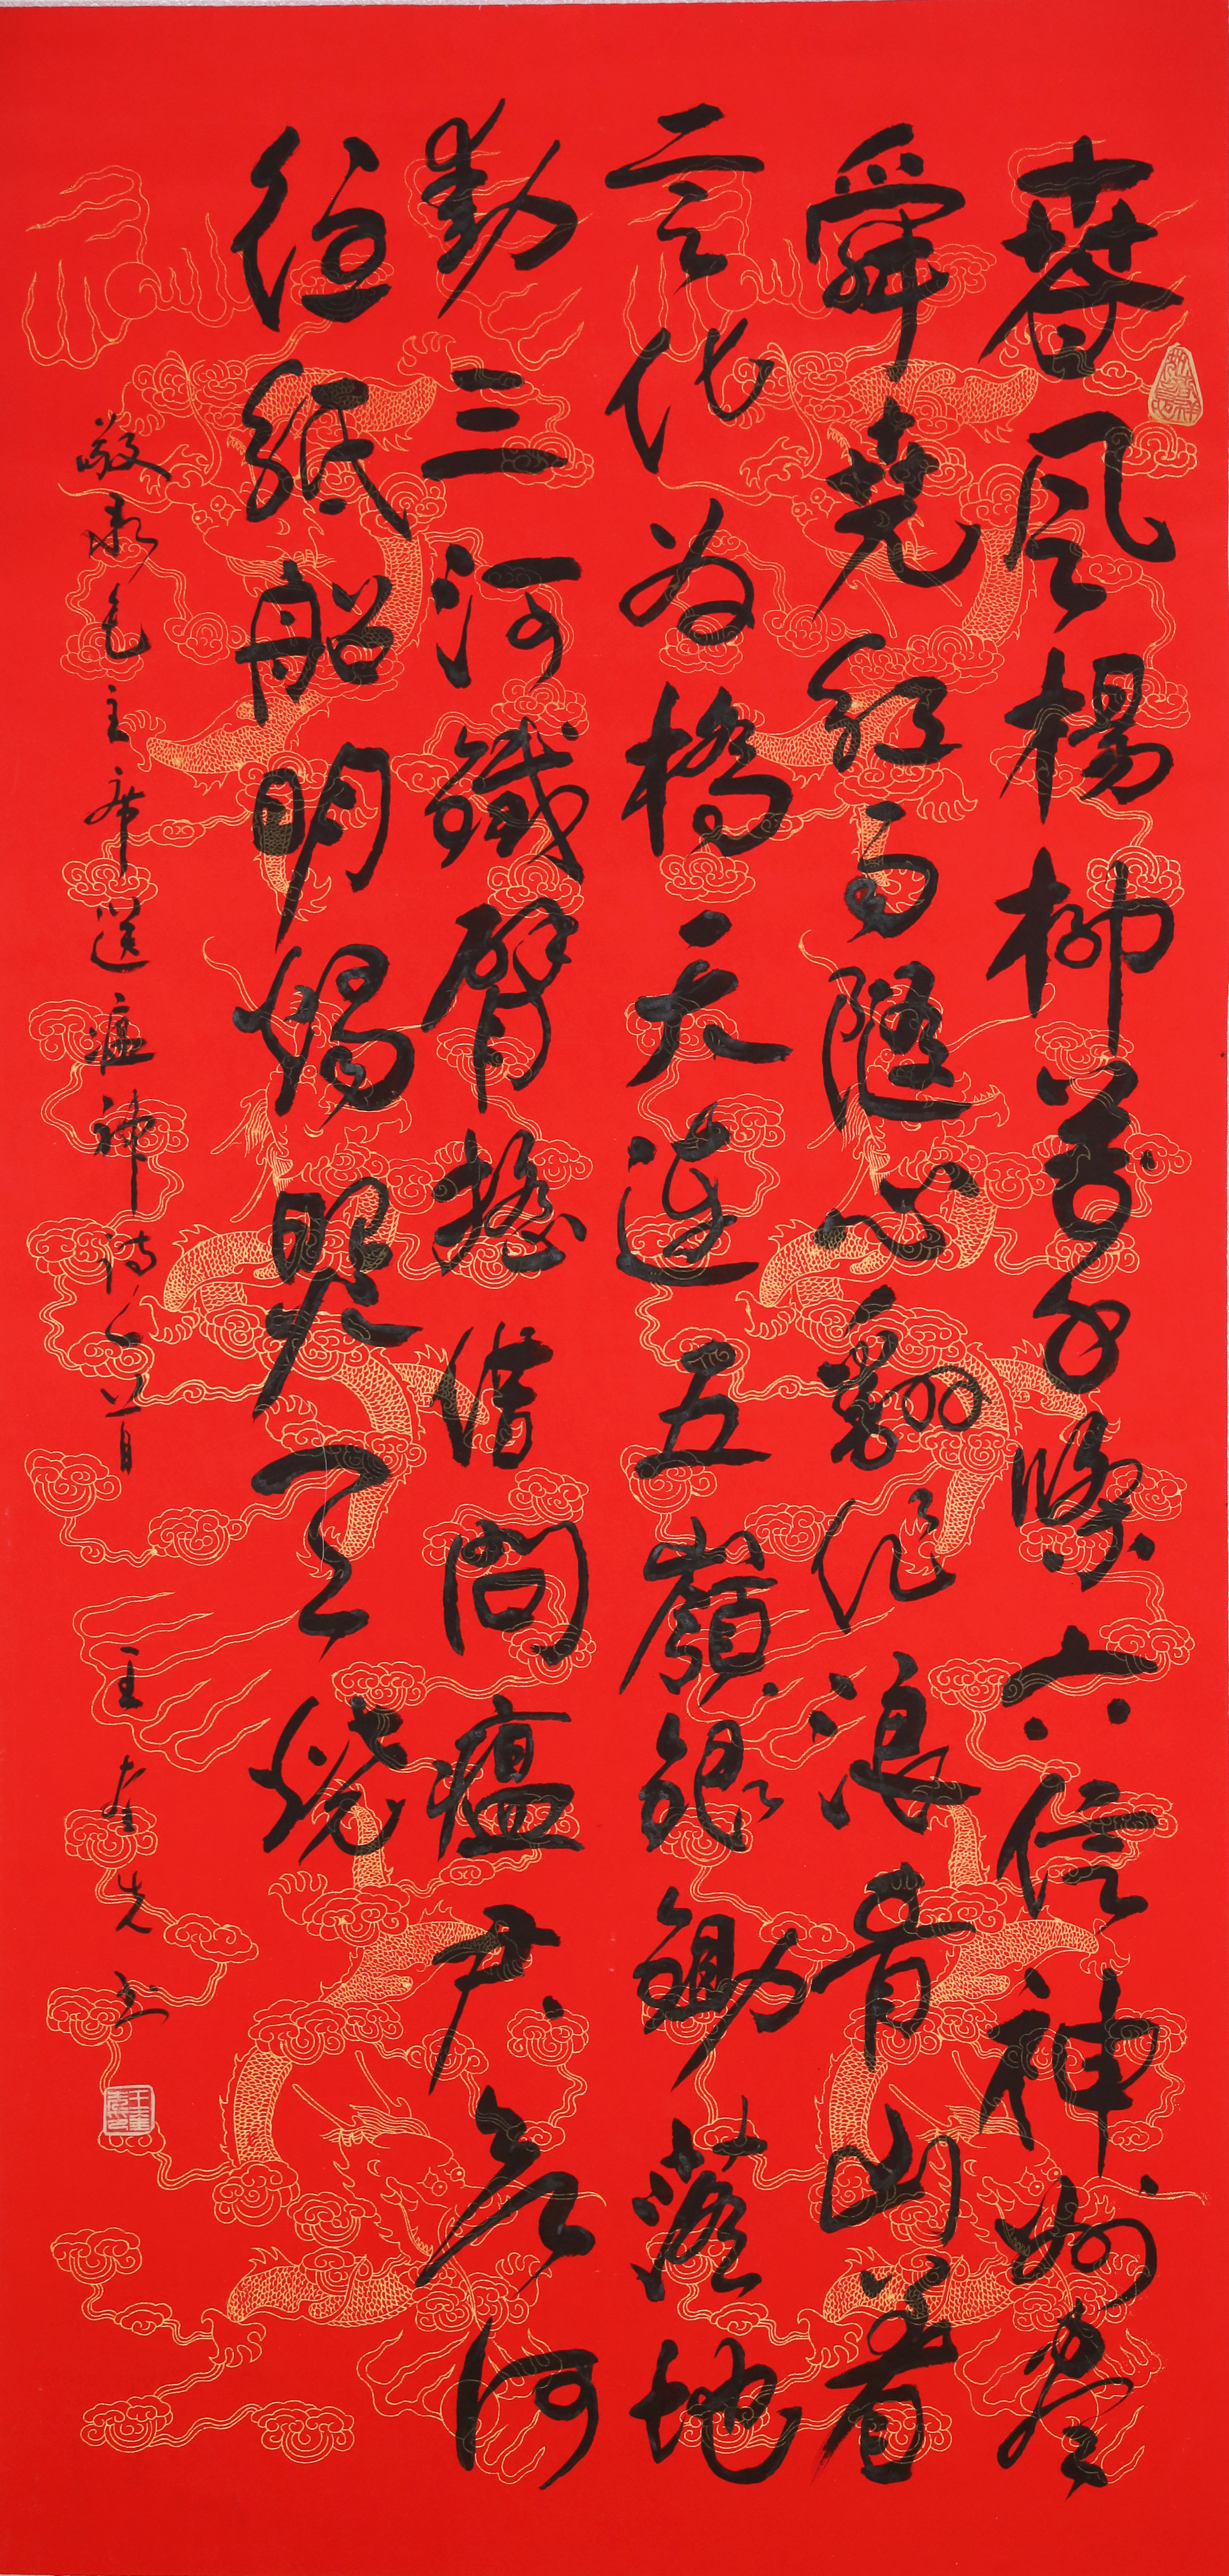 春风楊柳萬千條六億神州盡
舜堯紅雨隨心翻作浪青山着
意化为橋天連五嶺銀鋤落地
動三河鐵臂搖借問瘟君欲何
往紙船明燭照天燒
敬录毛主席送瘟神诗一首 王奎先书